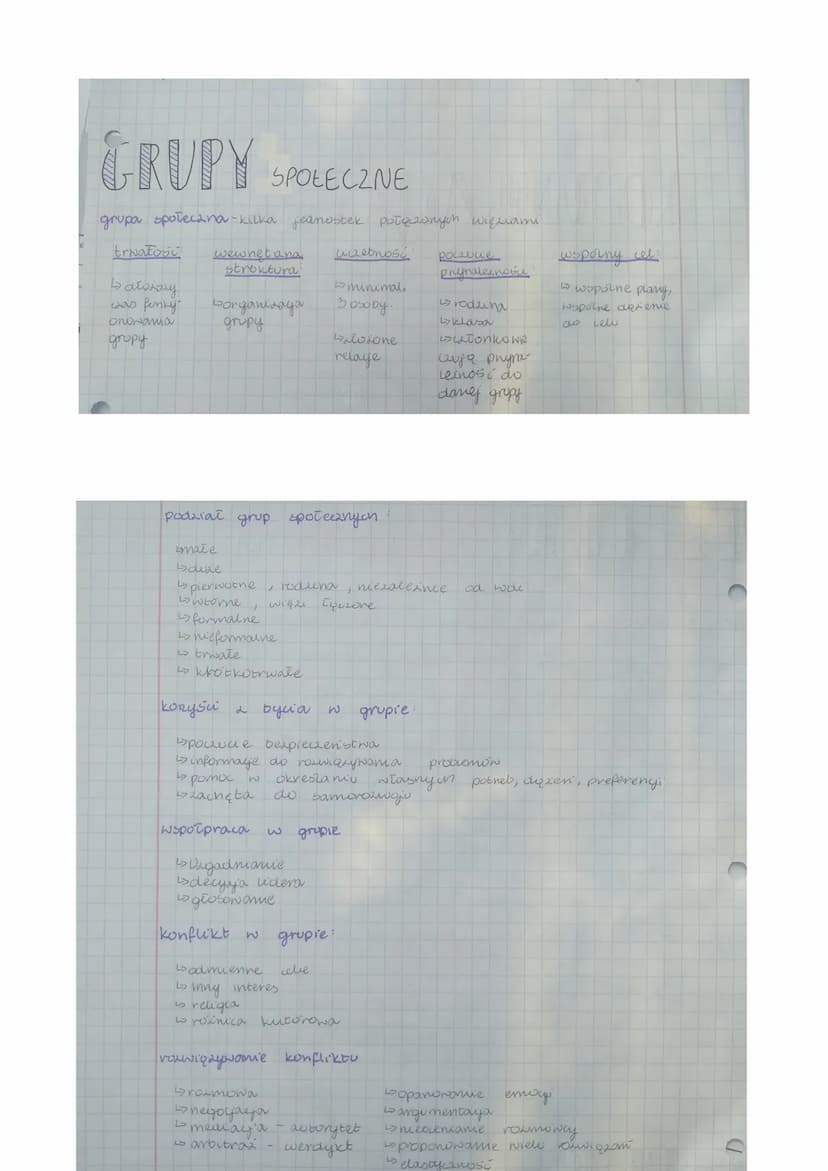 GRUPY SPOŁECZNE
grupa społeczna - kilka jednostek połączonych więziami
trwałość
↳ dłuższy
czas funkcj-
onowania
grupy
wewnętrzna
struktura
↳ organizacja
grupy
liczebność
↳ minimal.
3 osoby.
↳ złożone
relacje
poczucie
przynależności
↳ rodzina
↳ klasa
↳ członkowie
czują przyna-
leżność do
danej grupy
wspólny cel:
↳ wspólne plany,
wspólne dążenie
do celu
podział grup społecznych:
↳ małe
↳ duże
↳ pierwotne, rodzina, niezależnie od woli
↳ wtórne, więzi łączone
↳ formalne
↳ nieformalne
↳ trwałe
↳ krótkotrwałe
korzyści z bycia w grupie:
↳ poczucie bezpieczeństwa
↳ informacje do rozwiązywania problemów
↳ pomoc w określaniu własnych potrzeb, dążeń, preferencji
↳ zachęta do samorozwoju
współpraca w grupie
↳ Uzgadnianie
↳ decyzja lidera
↳ głosowanie
konflikt w grupie:
↳ odmienne cele
↳ inny interes
↳ religia
↳ różnica kulturowa
rozwiązywanie konfliktu
↳ rozmowa
↳ negocjacja
↳ mediacja - autorytet
↳ arbitraż - werdykt
↳ opanowanie emocji
↳ argumentacja
↳ nieocenianie rozmówcy
↳ proponowanie wielu rozwiązań
↳ elastyczność